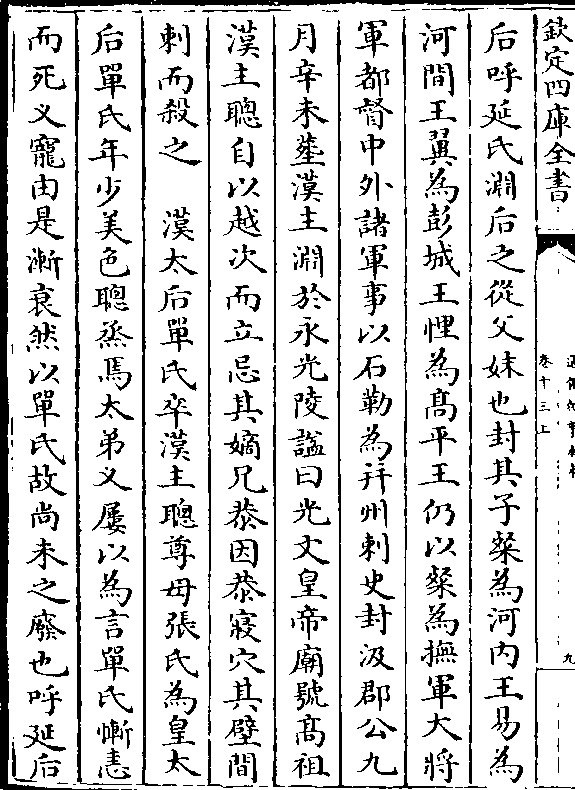 欽定四庫全書
卷十三上
九
后呼延氏淵后之從父妹也封其子粲為河内王易為
河間王翼為彭城王悝為髙平王仍以粲為撫軍大將
軍都督中外諸軍事以石勒為并州刺史封汲郡公九
月辛未塟漢主淵於永光陵諡曰光文皇帝廟號髙祖
漢主聰自以越次而立忌其嫡兄恭因恭寢穴其壁間
刺而殺之　漢太后單氏卒漢主聰尊母張氏為皇太
后單氏年少美色聰烝焉太弟乂屢以為言單氏慚恚
而死乂寵由是漸衰然以單氏故尚未之廢也呼延后